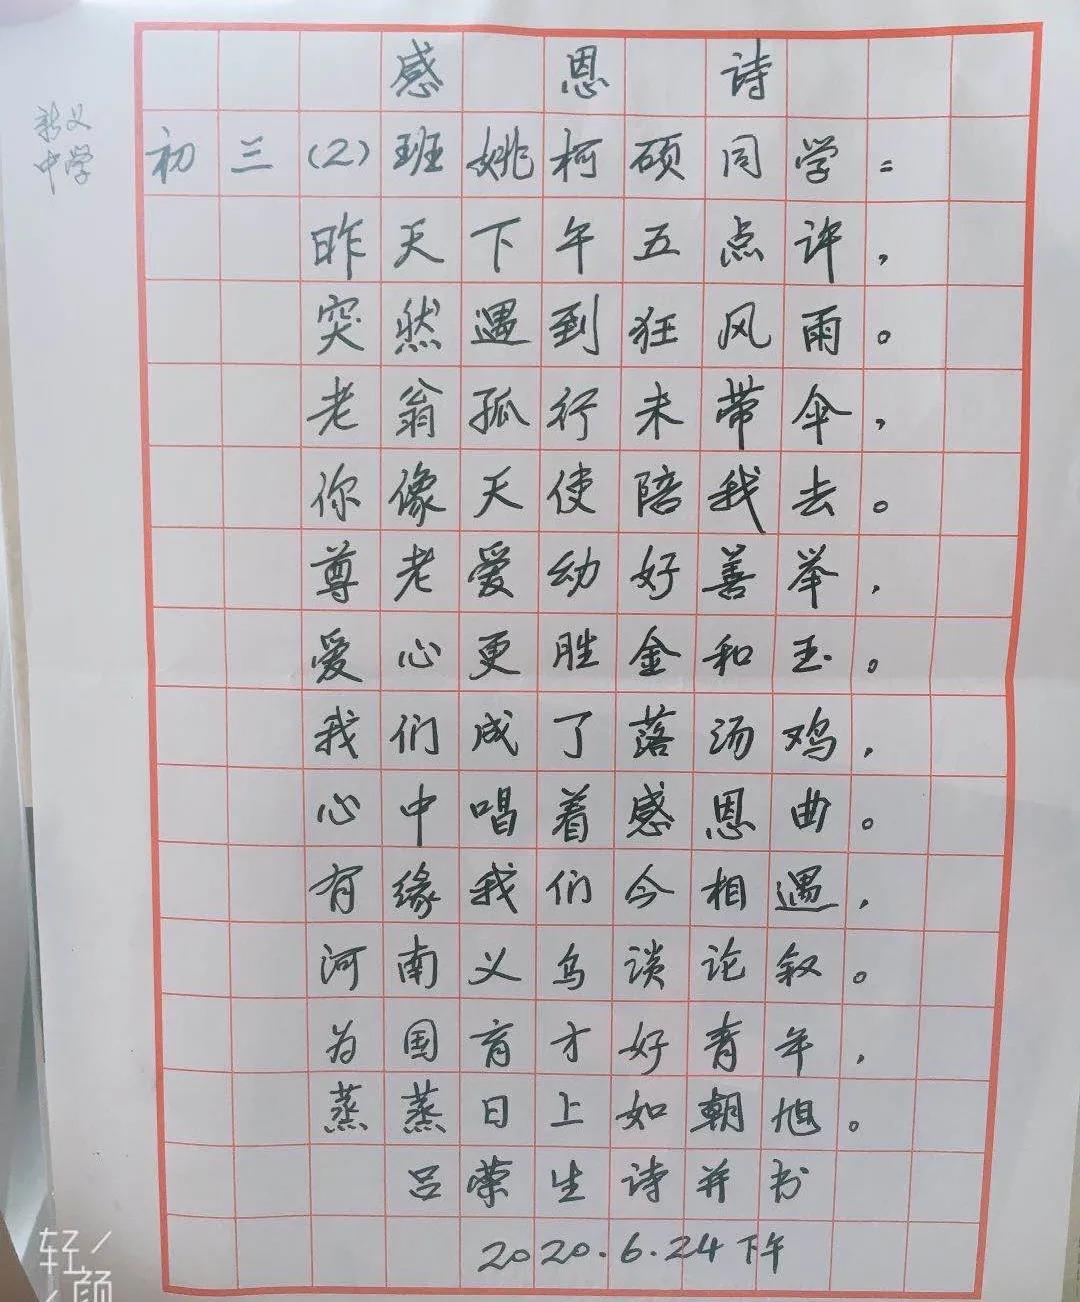 感恩诗
新义
中学
初三(2)班姚柯硕同学:
昨天下午五点许,
突然遇到狂风雨。
老翁孤行未带伞,
你像天使陪我去。
尊老爱幼好善举,
爱心更胜金和玉。
我们成了落汤鸡,
心中唱着感恩曲。
有缘我们今相遇,
河南义乌谈论叙。
为国育才好青年,
蒸蒸日上如朝旭。
吕荣生诗并书
2020.6.24下午
轻颜